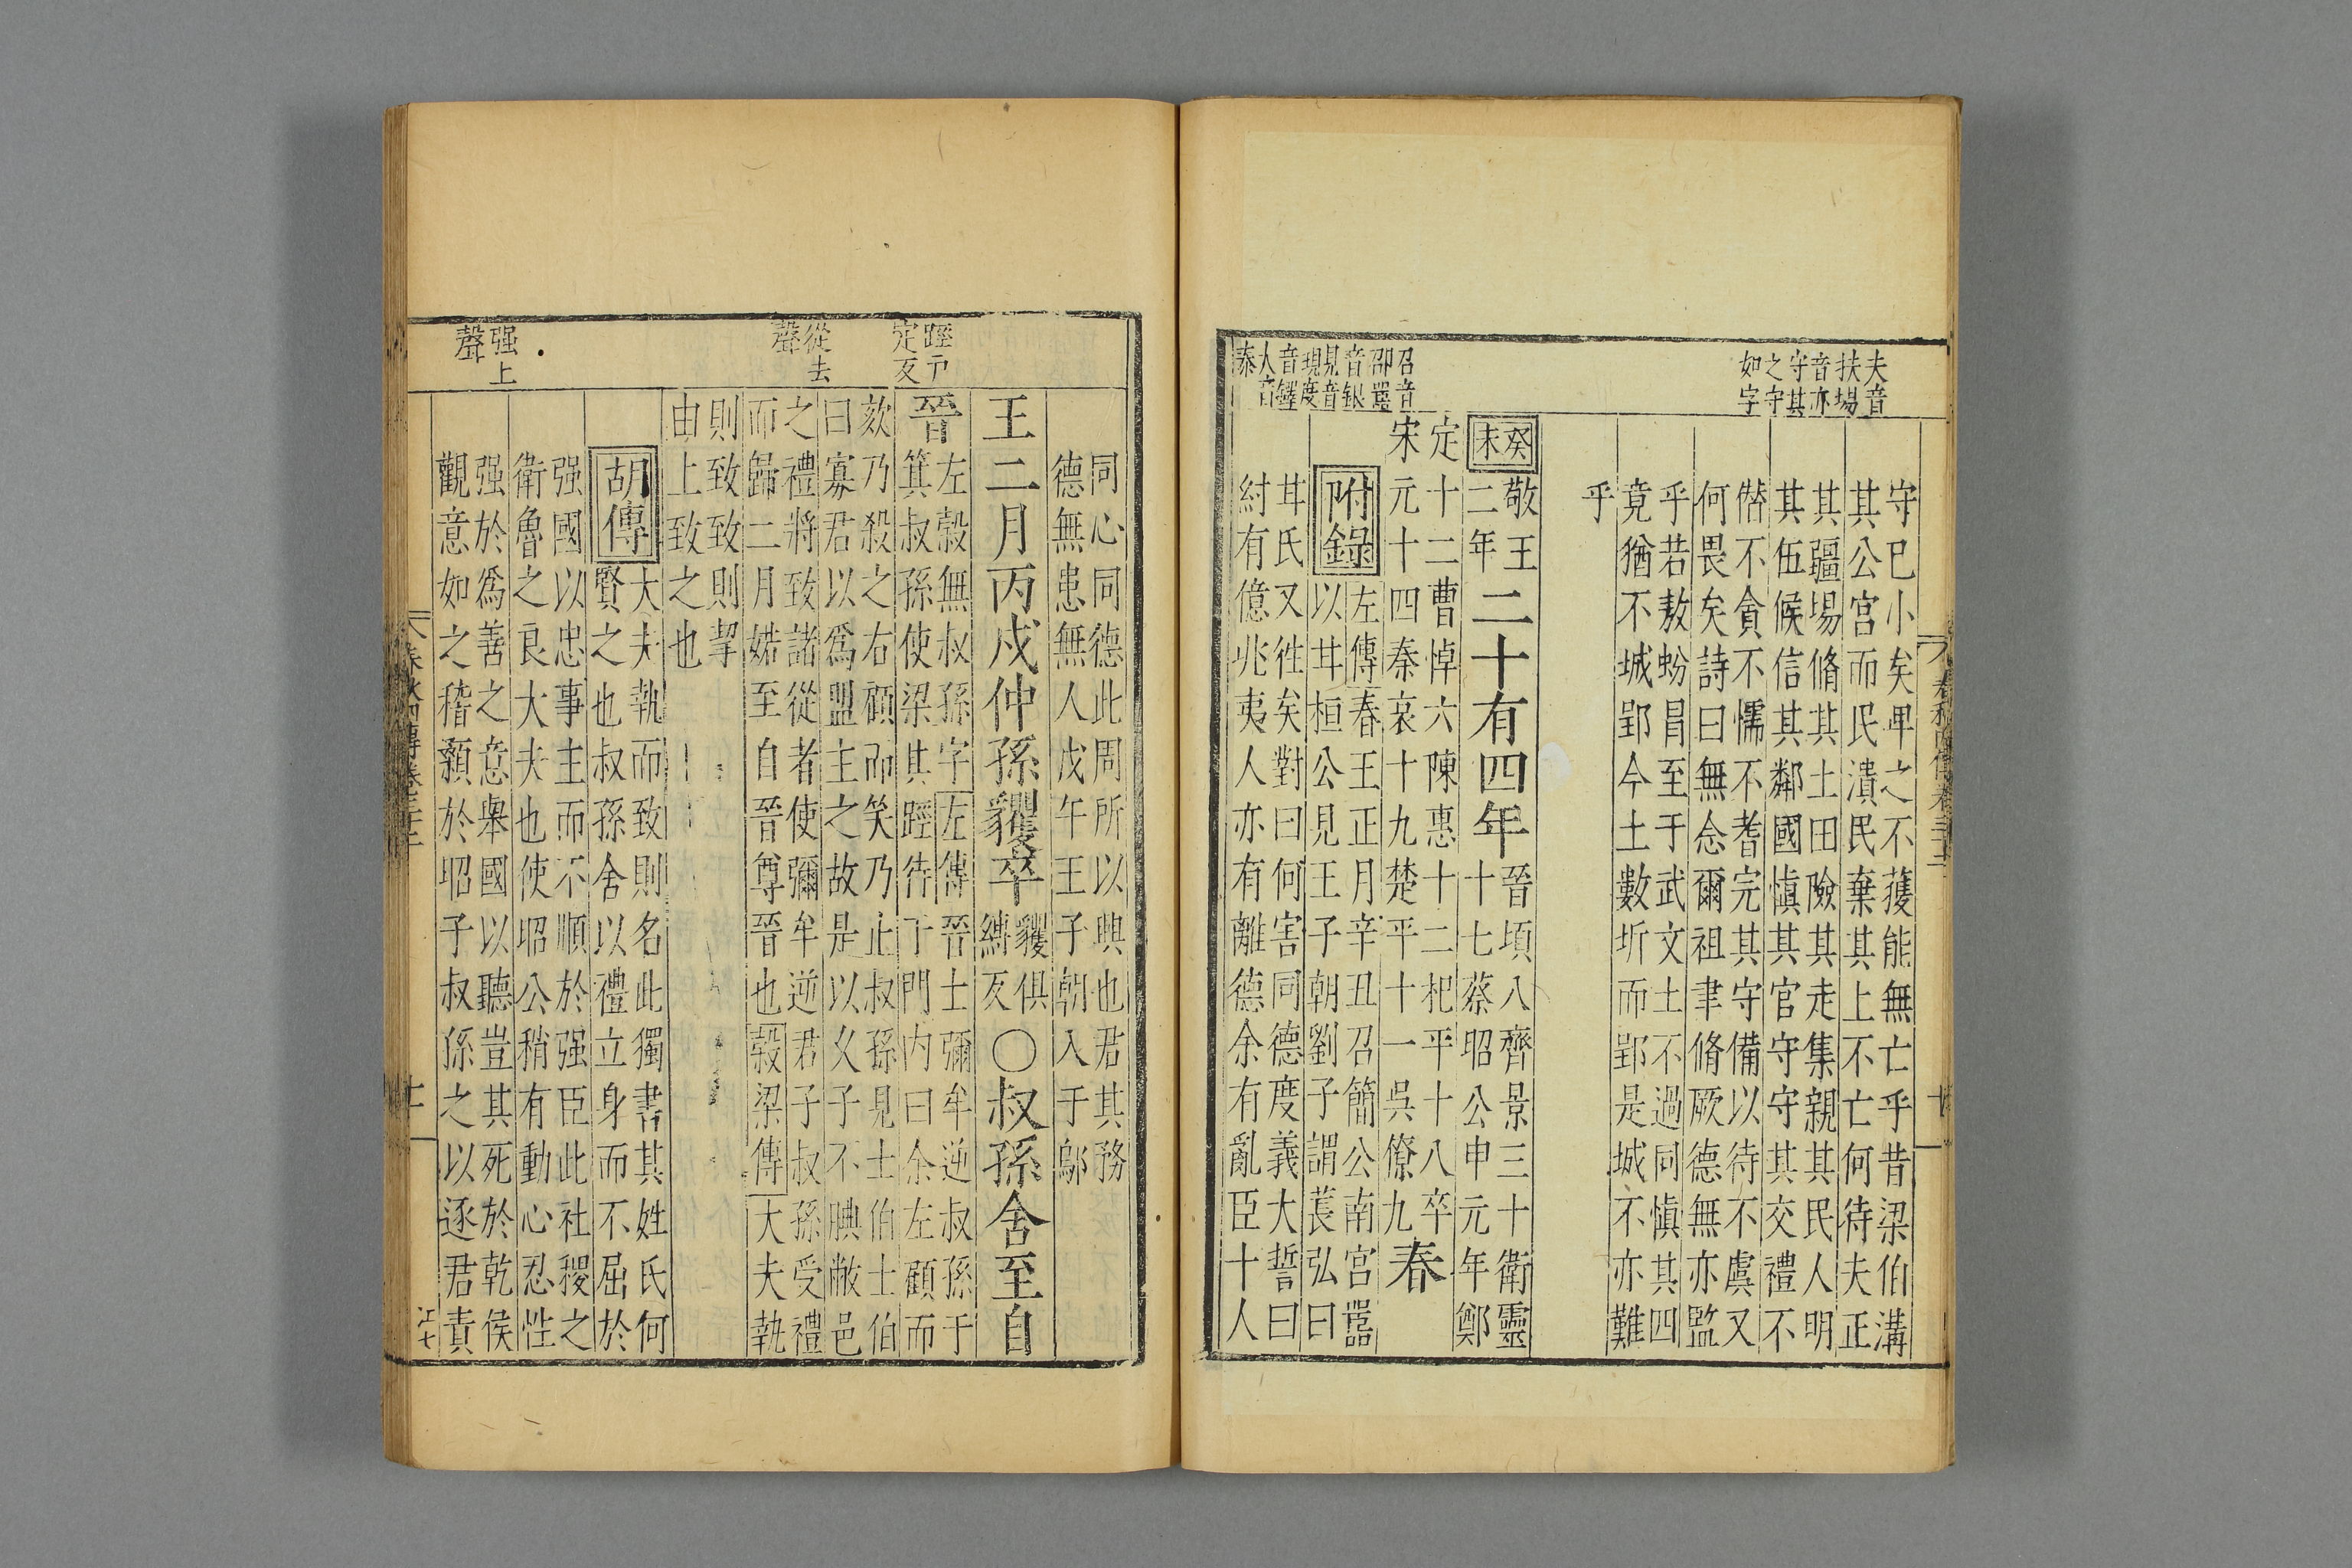 夫音
扶場
音亦
守其
之守
如字
守已小矣卑之不獲能無亡乎昔梁伯溝
其公宮而民潰民棄其上不亡何待夫正
其疆場脩其土田險其走集親其民人明
其伍候信其鄰國愼其官守守其交禮不
僭不貪不懦不耆完其守備以待不虞又
何畏矣詩曰無念爾祖聿脩厥德無亦監
乎若敖蚡冒至于武文土不過同愼其四
竟猶不城郢今土數圻而郢是城不亦難
乎
癸未
敬王二年
二十有四年
晉頃八齊景三十衛靈
十七蔡昭公申元年鄭
定十二曹悼六陳惠十二杞平十八卒
宋元十四秦哀十九楚平十一吳僚九
春
召音
卲嚚
音銀
見音
現度
音鐸
大音
泰
附錄
左傳春王正月辛丑召簡公南宮嚚
以甘桓公見王子朝劉子謂萇弘曰
甘氏又徃矣對曰何害同德度義大誓曰
紂有億兆夷人亦有離德余有亂臣十人
春秋四傳卷三十二
同心同德此周所以興也君其務
德無患無人戊午王子朝入于鄔
王二月丙戌仲孫貜卒
貜俱
縛反
○叔孫舍至自
晉
脛戸
定反
左穀無叔孫字左傳晉士彌牟逆叔孫于
箕叔孫使梁其踁待于門内曰余左顧而
欬乃殺之右顧而笑乃止叔孫見士伯士伯
曰寡君以爲盟主之故是以久子不腆敝邑
從去
聲
之禮將致諸從者使彌牟逆君子叔孫受禮
而歸二月婼至自晉尊晉也穀梁傳大夫執
則致致則挈
由上致之也
胡傳
大夫執而致則名此獨書其姓氏何
賢之也叔孫舍以禮立身而不屈於
强國以忠事主而不順於强臣此社稷之
衛魯之良大夫也使昭公稍有動心忍性
强上
聲
强於爲善之意舉國以聽豈其死於乾侯
觀意如之稽顙於昭子叔孫之以逐君責
春秋四傳卷三十二
十一